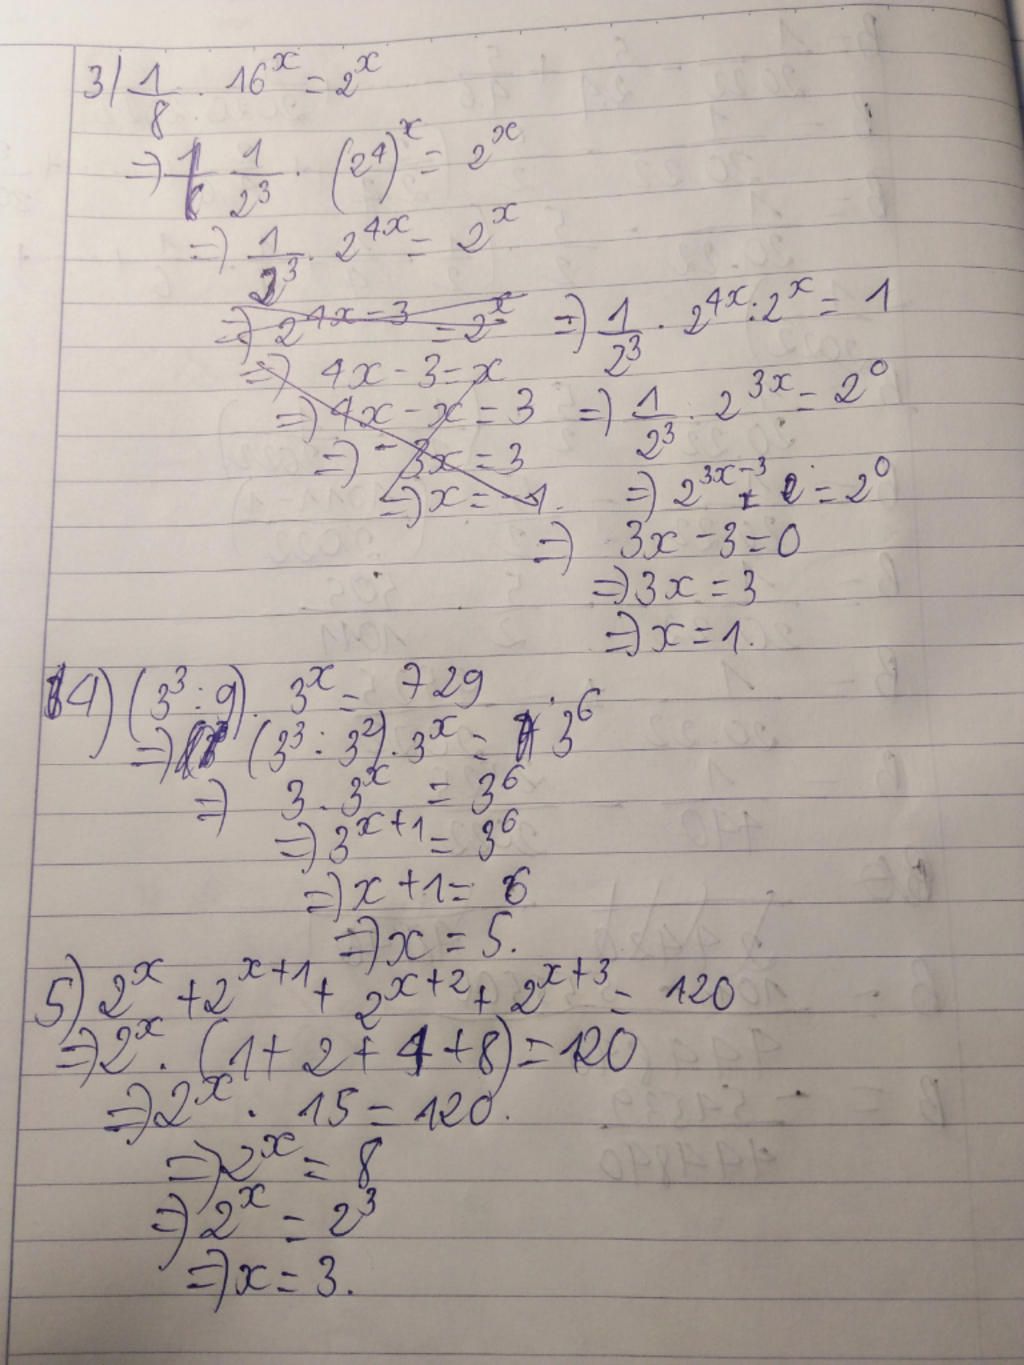 3) 1/8 . 16^x = 2^x
=> 1/2^3 . (2^4)^x = 2^x
=> 1/2^3 . 2^4x = 2^x
=> 2^4x-3 = 2^x
=> 4x - 3 = x
=> 4x - x = 3
=> - 3x = 3
=> x = -1.
=> 1/2^3 . 2^4x : 2^x = 1
=> 1/2^3 . 2^3x = 2^0
=> 2^3x-3 = 2^0
=> 3x - 3 = 0
=> 3x = 3
=> x = 1.
4) (3^3 : 9) . 3^x = 729
=> (3^3 : 3^2) . 3^x = 3^6
=> 3 . 3^x = 3^6
=> 3^x+1 = 3^6
=> x + 1 = 6
=> x = 5.
5) 2^x + 2^x+1 + 2^x+2 + 2^x+3 = 120
=> 2^x . (1 + 2 + 4 + 8) = 120
=> 2^x . 15 = 120.
=> 2^x = 8
=> 2^x = 2^3
=> x = 3.